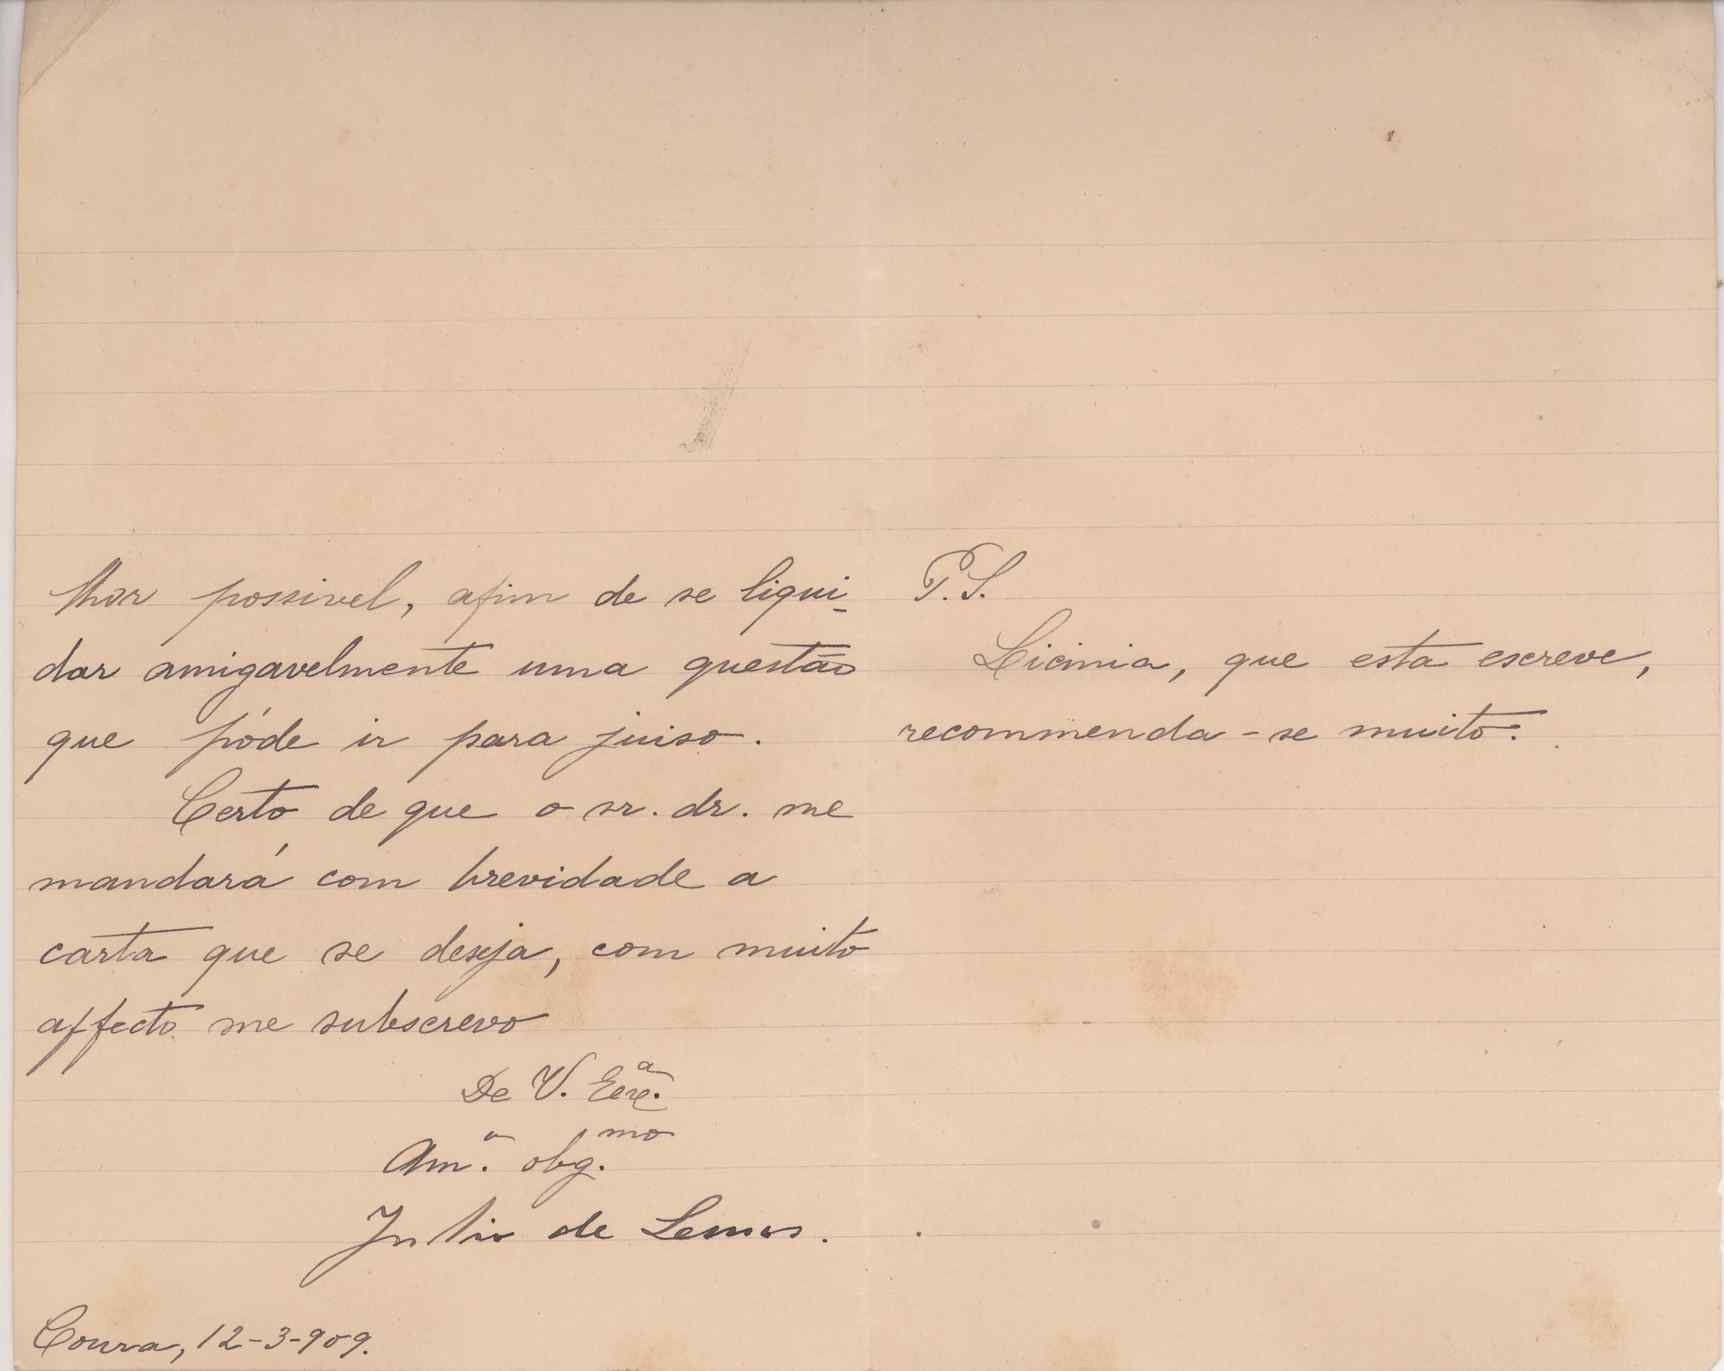 lhor possivel, afim de se liqui-
dar amigavelmente uma questão
que póde ir para juiso.
Certo de que o sr. dr. me
mandará com brevidade a
carta que se deseja, com muito
affecto me subscrevo
De V. Exc.ª
Am.º obg.mo
Julio de Lemos.
Coura, 12-3-909.
P. S.
Licinia, que esta escreve,
recommenda-se muito.